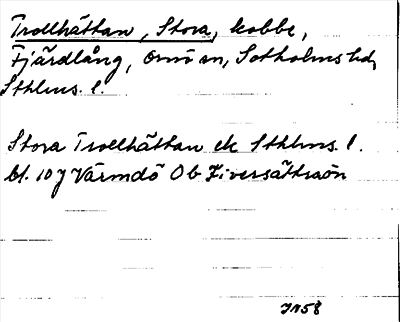 Trollhättan, Stora, kobbe,
Fjärdlång, Ornö sn, Sotholms hd,
Sthlms. l.
Stora Trollhättan ek Sthlms. l.
bl. 10 J Värmdö Ob
IN58